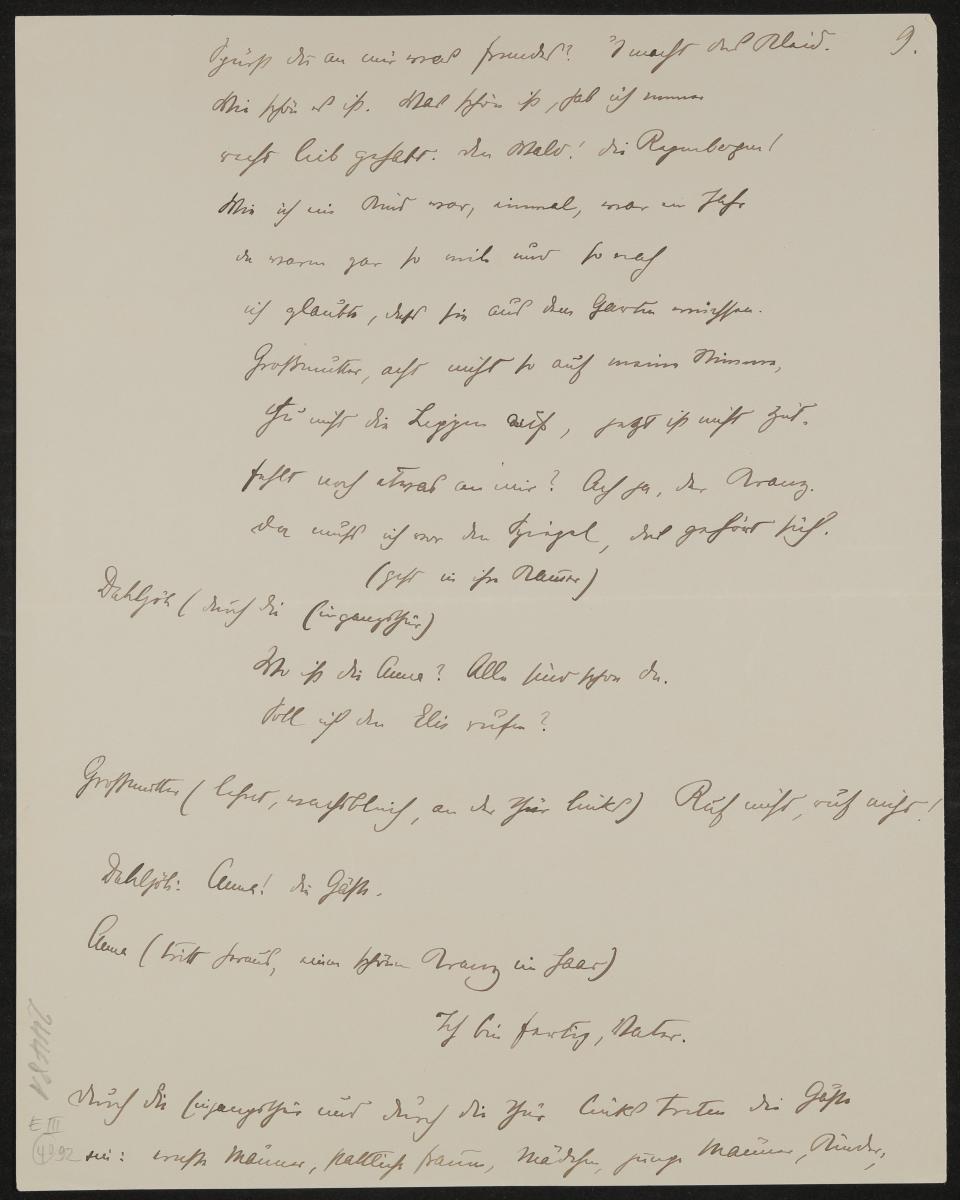 9.
Spürst du an mir was fremdes? 's macht das Kleid.
Wie schön es ist. Was schön ist, hab ich immer
recht lieb gehabt. den Wald! die Regenbogen!
Wie ich ein Kind war, einmal, war ein Jahr
da waren gar so viele und so nah
ich glaubte, dass sie aus dem Garten wüchsen.
Großmutter, acht nicht so auf meine Stimme,
Thu nicht die Lippen auf, jetzt ist nicht Zeit.
fehlt noch etwas an mir? Ach ja, der Kranz.
Da muss ich vor den Spiegel, das gehört sich.
(geht in ihre Kammer)
Dahlsjöh (durch die Eingangsthür)
Wo ist die Anna? Alle sind schon da.
Soll ich den Elis rufen?
Grossmutter (lehnt, wachsbleich, an der Thür links) Ruf nicht, ruf nicht!
Dahlsjöh: Anna! die Gäste.
Anna (tritt heraus, einen schönen Kranz im Haar)
Ich bin fertig, Vater.
durch die Eingangsthür und durch die Thür links treten die Gäste
ein: ernste Männer, stattliche Frauen, Mädchen, junge Männer, Kinder,
E III
49.92